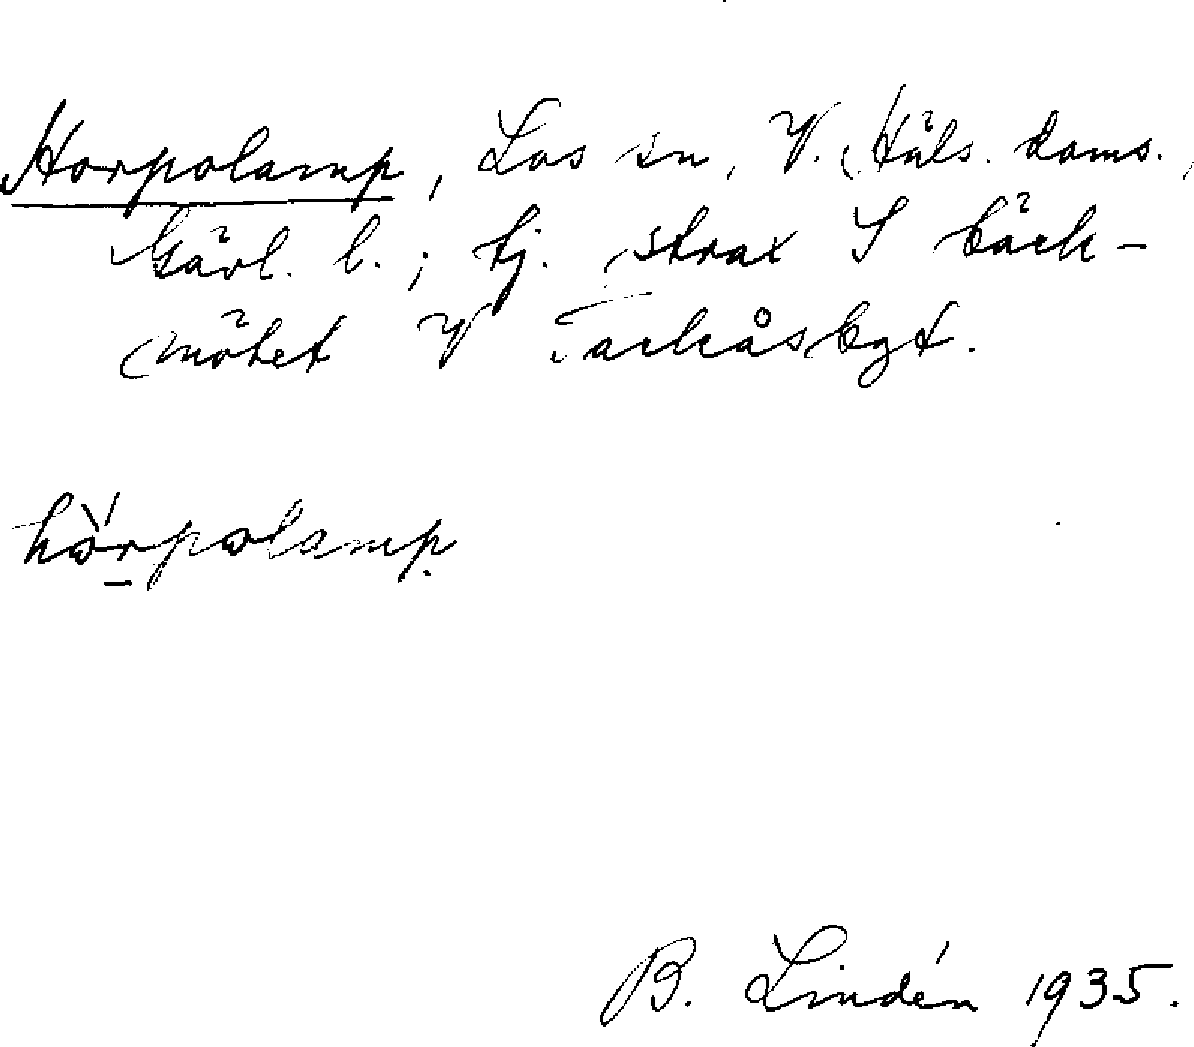 Horpolamp, Los sn, V. Häls. doms.,
Gävl. l.; tj. strax S bäck-
mötet V Tackåsbyt.
hòrpolamp
B. Lindén 1935.